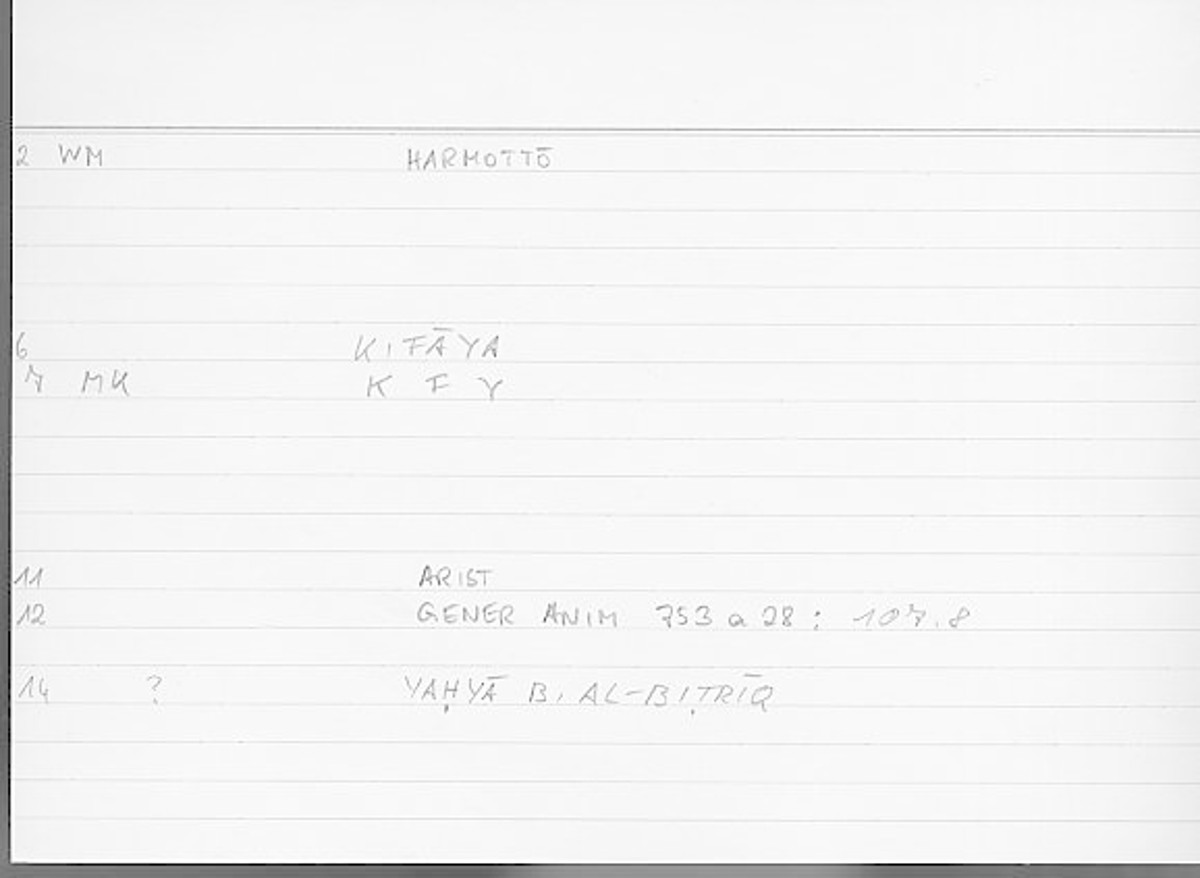 2 WM HARMOTTŌ
6 KIFĀYA
7 MK K F Y
11 ARIST
12 GENER ANIM 753 a 28 : 107.8
14 ? YAḤYĀ B. AL-BIṬRĪQ